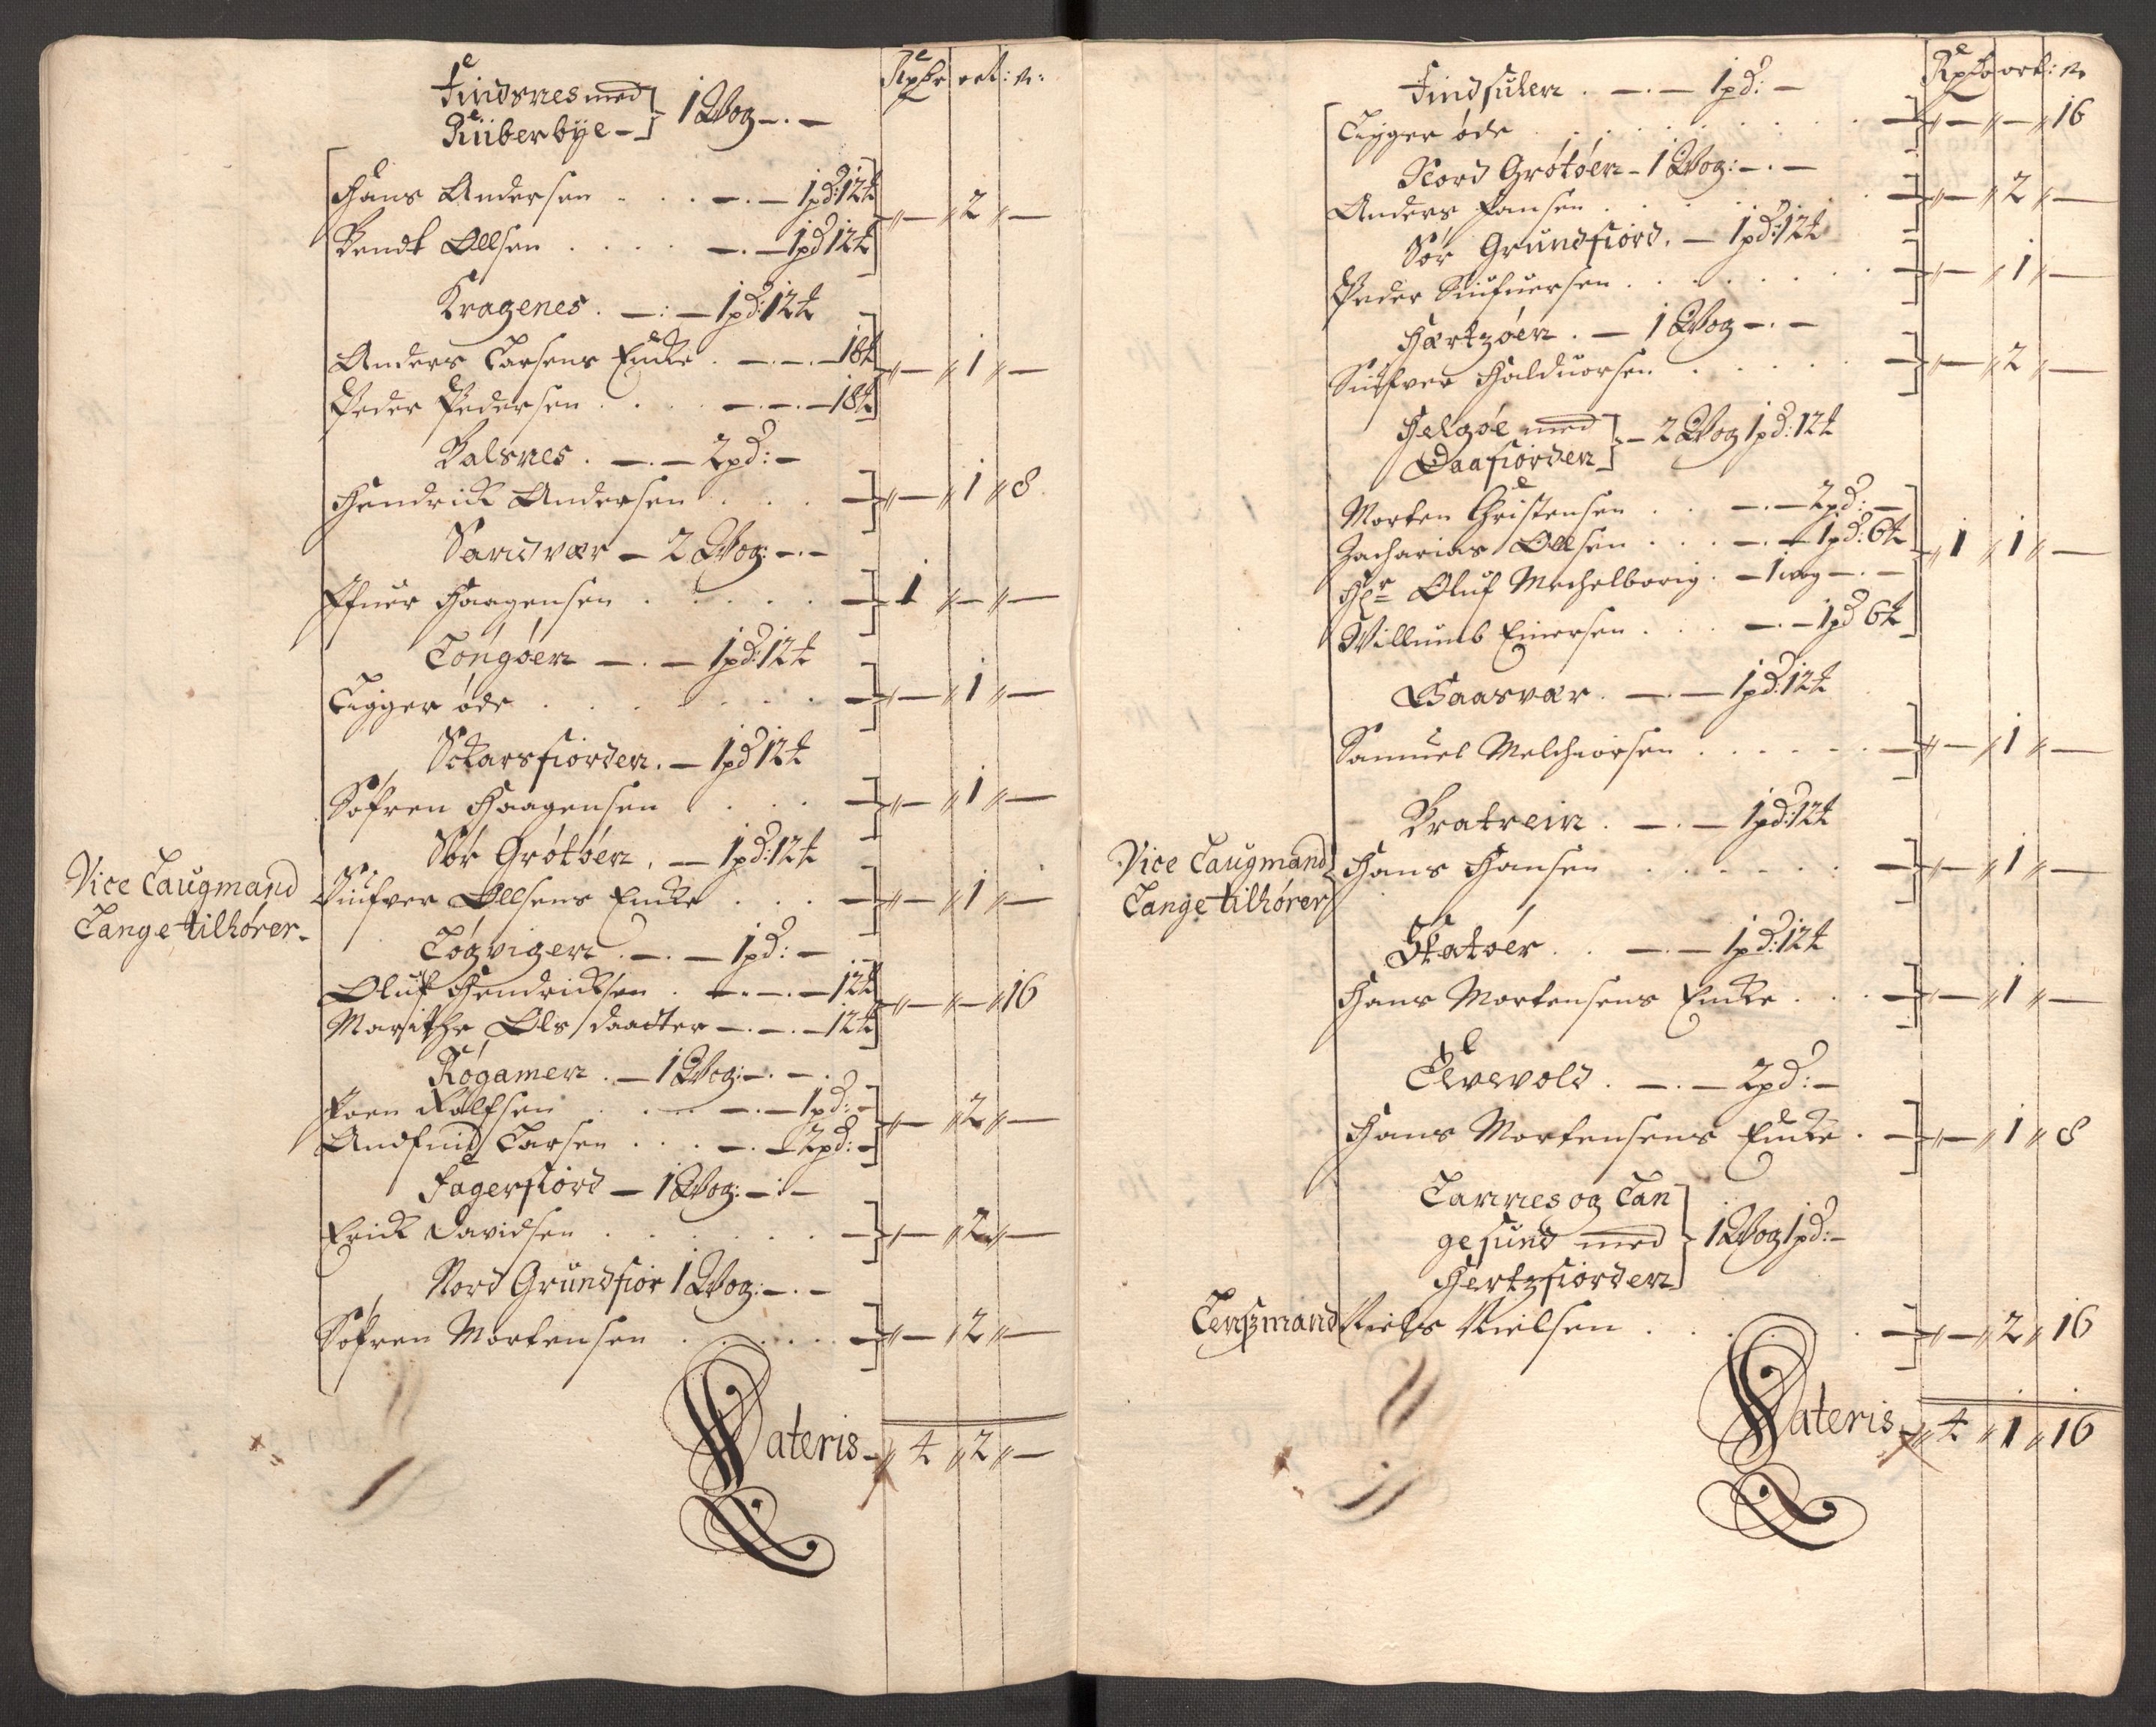 Rdr ort: s:
Findsnes med
Rüberbÿe - 1 Wog -.-
Hans Andersen . . . -.- 1pd: 12 ℔
Bendt Ollsen . . . . -.- 1pd 12 ℔ - 2 -
Kragenes . -:- 1pd: 12 ℔
Anders Larsens Encke . -.-.- 18 ℔
Peder Pedersen . . . -.-.- 18 ℔ - 1 -
Balsnes . -.- 2pd: -
Hendrick Andersen . . . - 1 8
Sandvær - 2 Wog: -.-
Haagensen . . . . . 1 - -
Löngöen -.- 1pd: 12 ℔
Ligger øde . . . . . . - 1 -
Scharsfiorden . - 1pd 12 ℔
Søfren Haagensen . . . - 1 -
Sör Grötöen . - 1pd: 12 ℔
Vice Laugmand
Lange tilhører -
Siufver Ollsens Encke . . . - 1 -
Løgvigen . -.- 1pd: -
Oluf Hendricksen . -.-.- 12 ℔
Marithe Olsdaatter -.-.- 12 ℔ - - 16
Røgamen . - 1 Wog: -.-.
Joen Rolfsen . . . -.- 1pd: -
Andfind Larsen . . . -.- 2pd: - - 2 -
Fagerfiord - 1 Wog: -:-
Erick Davidsen . . . . . . - 2 -
Nord Grundfior 1 Wog: -.-
Søfren Mortensen . . . . . - 2 -
Lateris - 4 2 -
Rdr ort: s
Findsulen . -.- 1pd: -
Ligger øde . . . . . . . - - 16
Nord Grøtöen - 1 Wog: -.-
Anders Jansen . . . . . . - 2 -
Sør Grundfiord . - 1pd: 12 ℔
Peder Siufuersen . . . . . . - 1 -
Hærtzöen . - 1 Wog -.-
Siufver Halduorsen . . . . - 2 -
Helgøe med
Daafiorden - 2 Wog 1pd: 12 ℔
Morten Christensen . . -.- 2pd: -
Zacharias Ollsen . . . -.- 1pd: 6 ℔
Hr Oluf Mechelborig . - 1 wog -.-
Willumb Einersen . . . -.- 1pd 6 ℔ 1 1 -
Gaasvær . -.- 1pd: 12 ℔
Samuel Melchiorsen . . . . . . - 1 -
Bratrein . -.- 1pd: 12 ℔
Vice Laugmand
Lange tilhører
Hans Hansen . . . . . . - 1 -
Skatöer . . -.- 1pd: 12 ℔
Hans Mortensens Encke . . . - 1 -
Elvevold . -.- 2pd: -
Hans Mortensens Encke . - 1 8
Lannes og Lan
gesund med
Hertzfiorden 1 Wog 1pd: -
Lenßmand Niels Nielsen . . . . - 2 16
Lateris 4 1 16